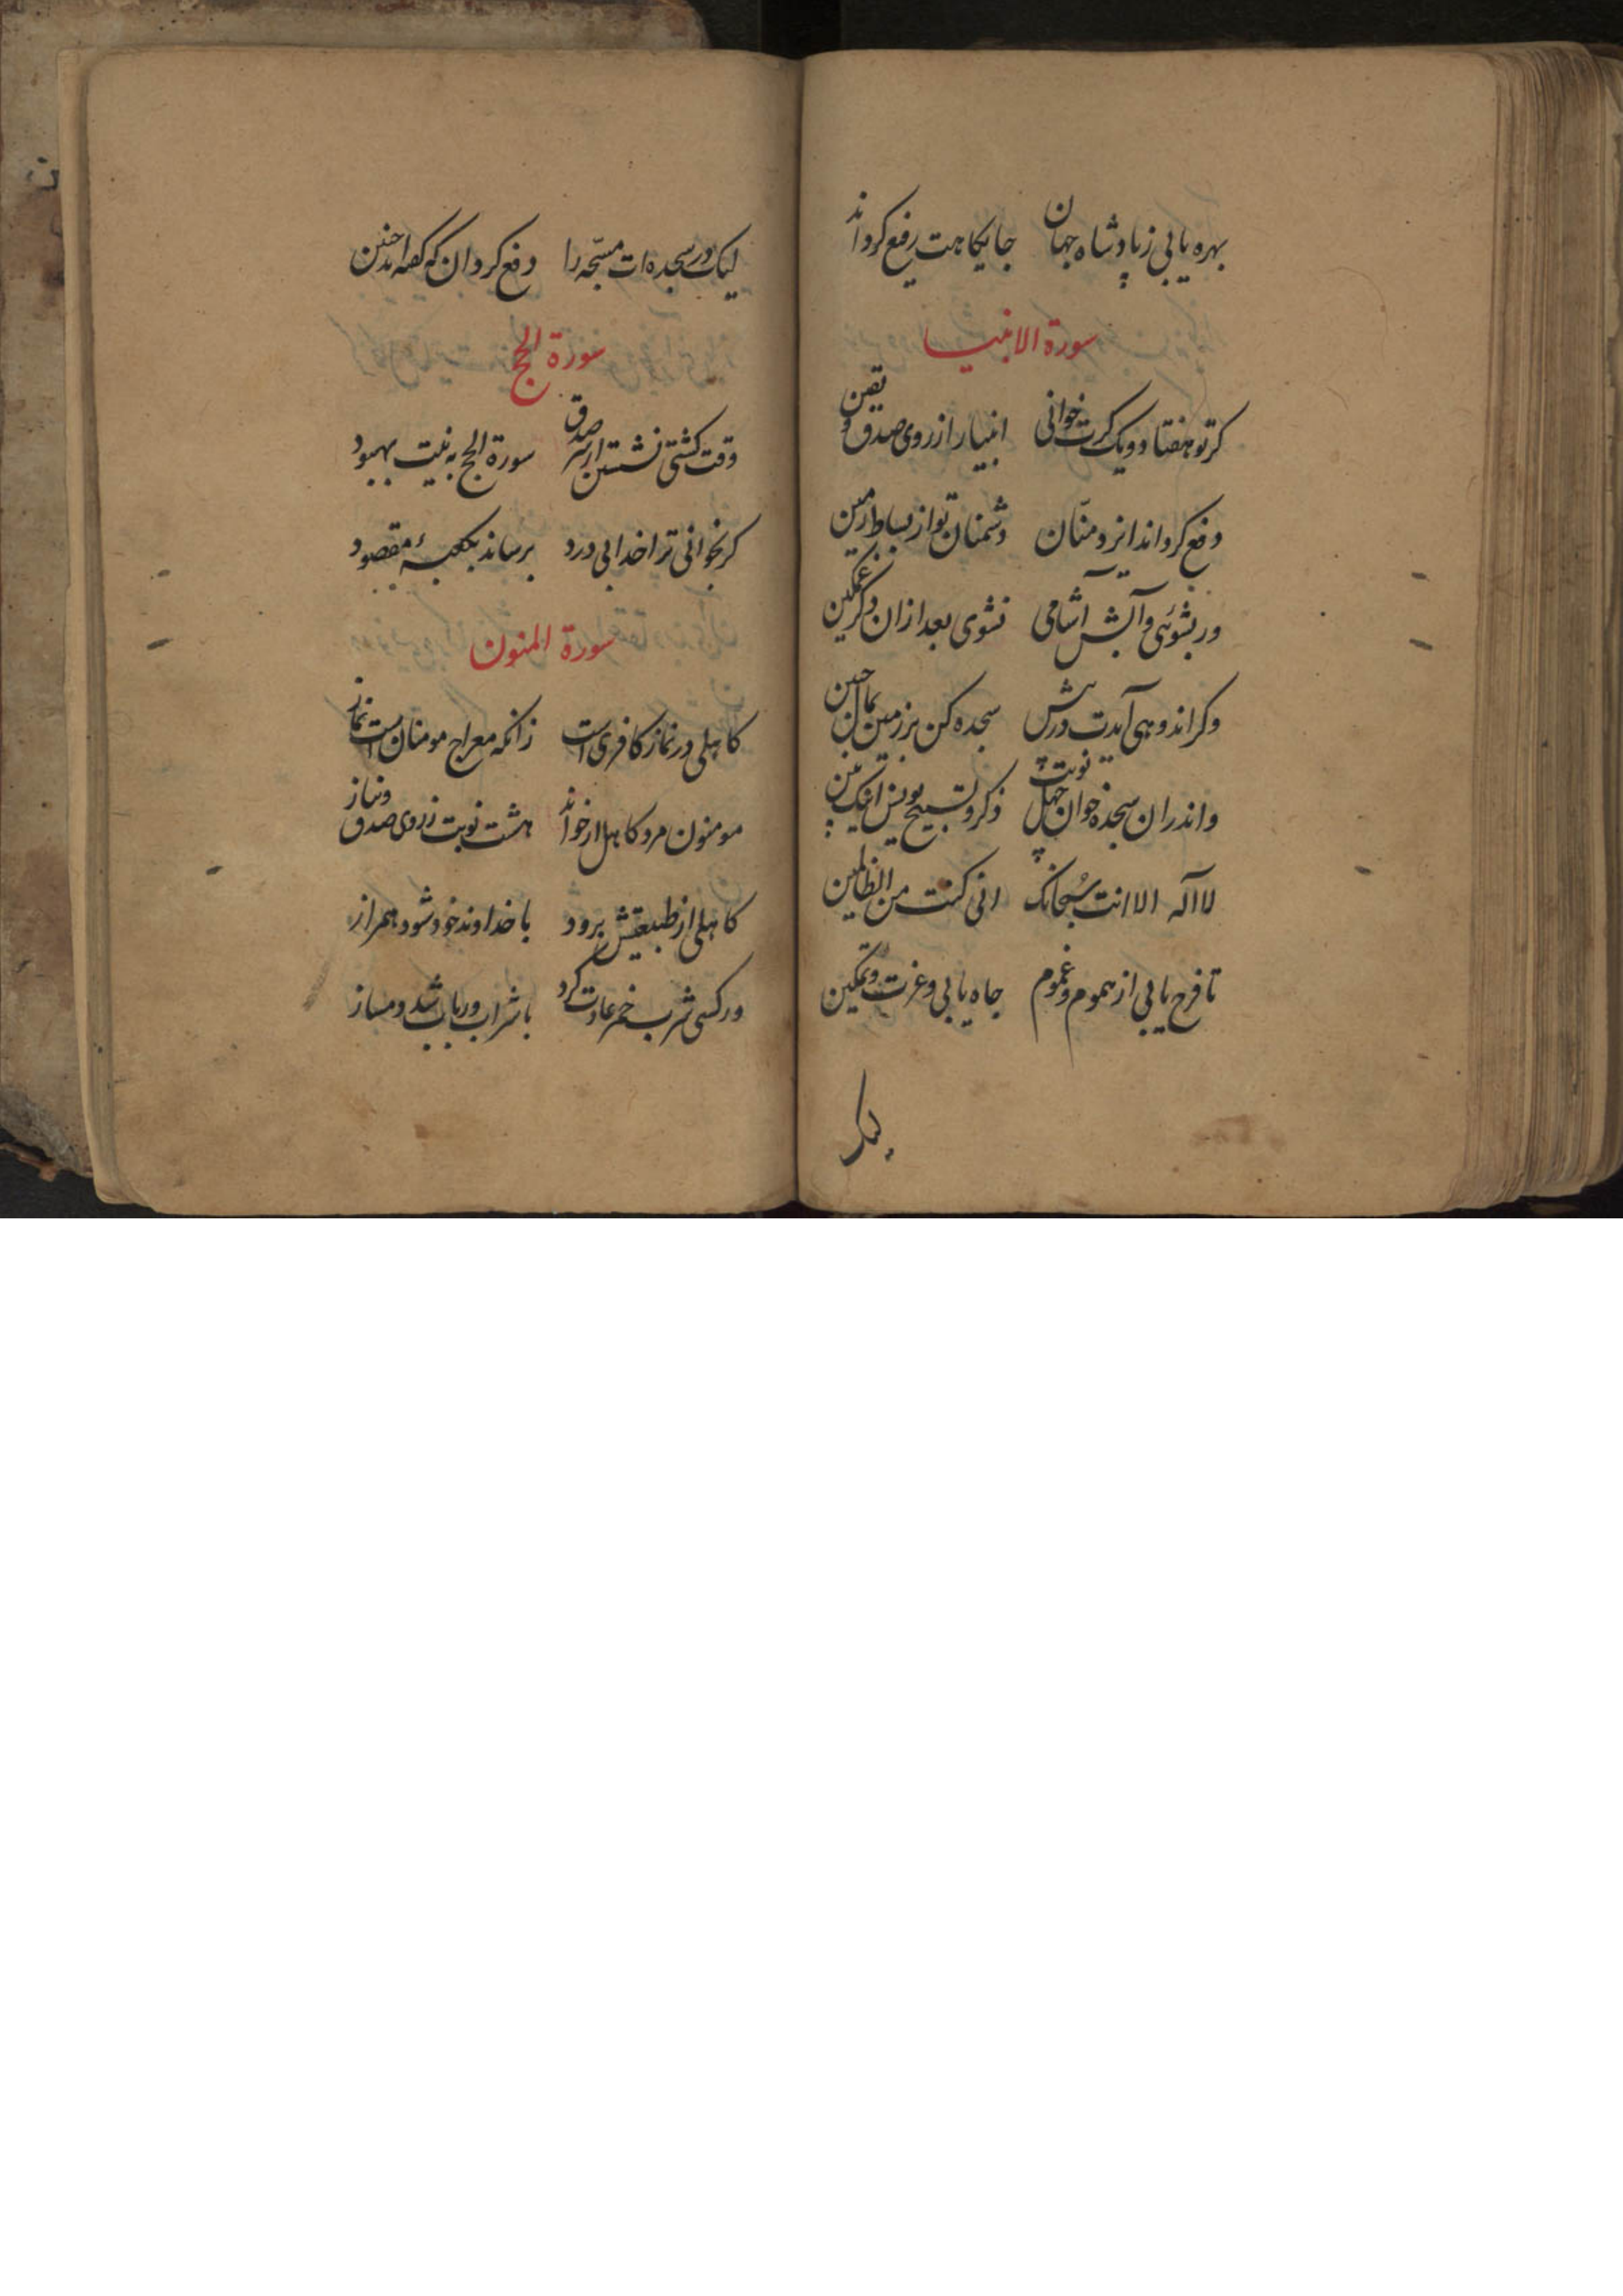 بهره یابی ز پادشاه جهان جایکاهت رفیع کرداند
سورة الانبیا
کر تو هفتاد و یک کرت خوانی انبیا را از روی صدق و یقین
دفع کرداند ایزد منّان دشمنان تو از بساط زمین
ور بشوئی و آبش آشامی نشوی بعد ازان دکر غمکین
وکر اندوهی آیدت در پیش سجده کن بر زمین بمال جبین
واندران سجده خوان چهل نوبت ذکر و تسبیح یونس اینک بین
لا اله الا انت سُبحانک انی کنت من الظالمین
تا فرح یابی از هموم و غموم جاه یابی و عزت و تمکین
لیک
لیک در سجده‌ات مسبّحه را دفع کردان که کفته‌اند چنین
سورة الحج
وقت کشتی نشستن از سر صدق سورة الحج به نیت بهبود
کر بخوانی ترا خدا بی درد برساند بکعبهٔ مقصود
سورة المنون
کاهلی در نماز کافری است زانکه معراج مومنان است نماز
مومنون مرد کاهل ار خواند هشت نوبت ز روی صدق و نیاز
کاهلی از طبیعتش برود با خداوند خود شود همراز
ور کسی شرب خمر عادت کرد با شراب و رباب شد دمساز